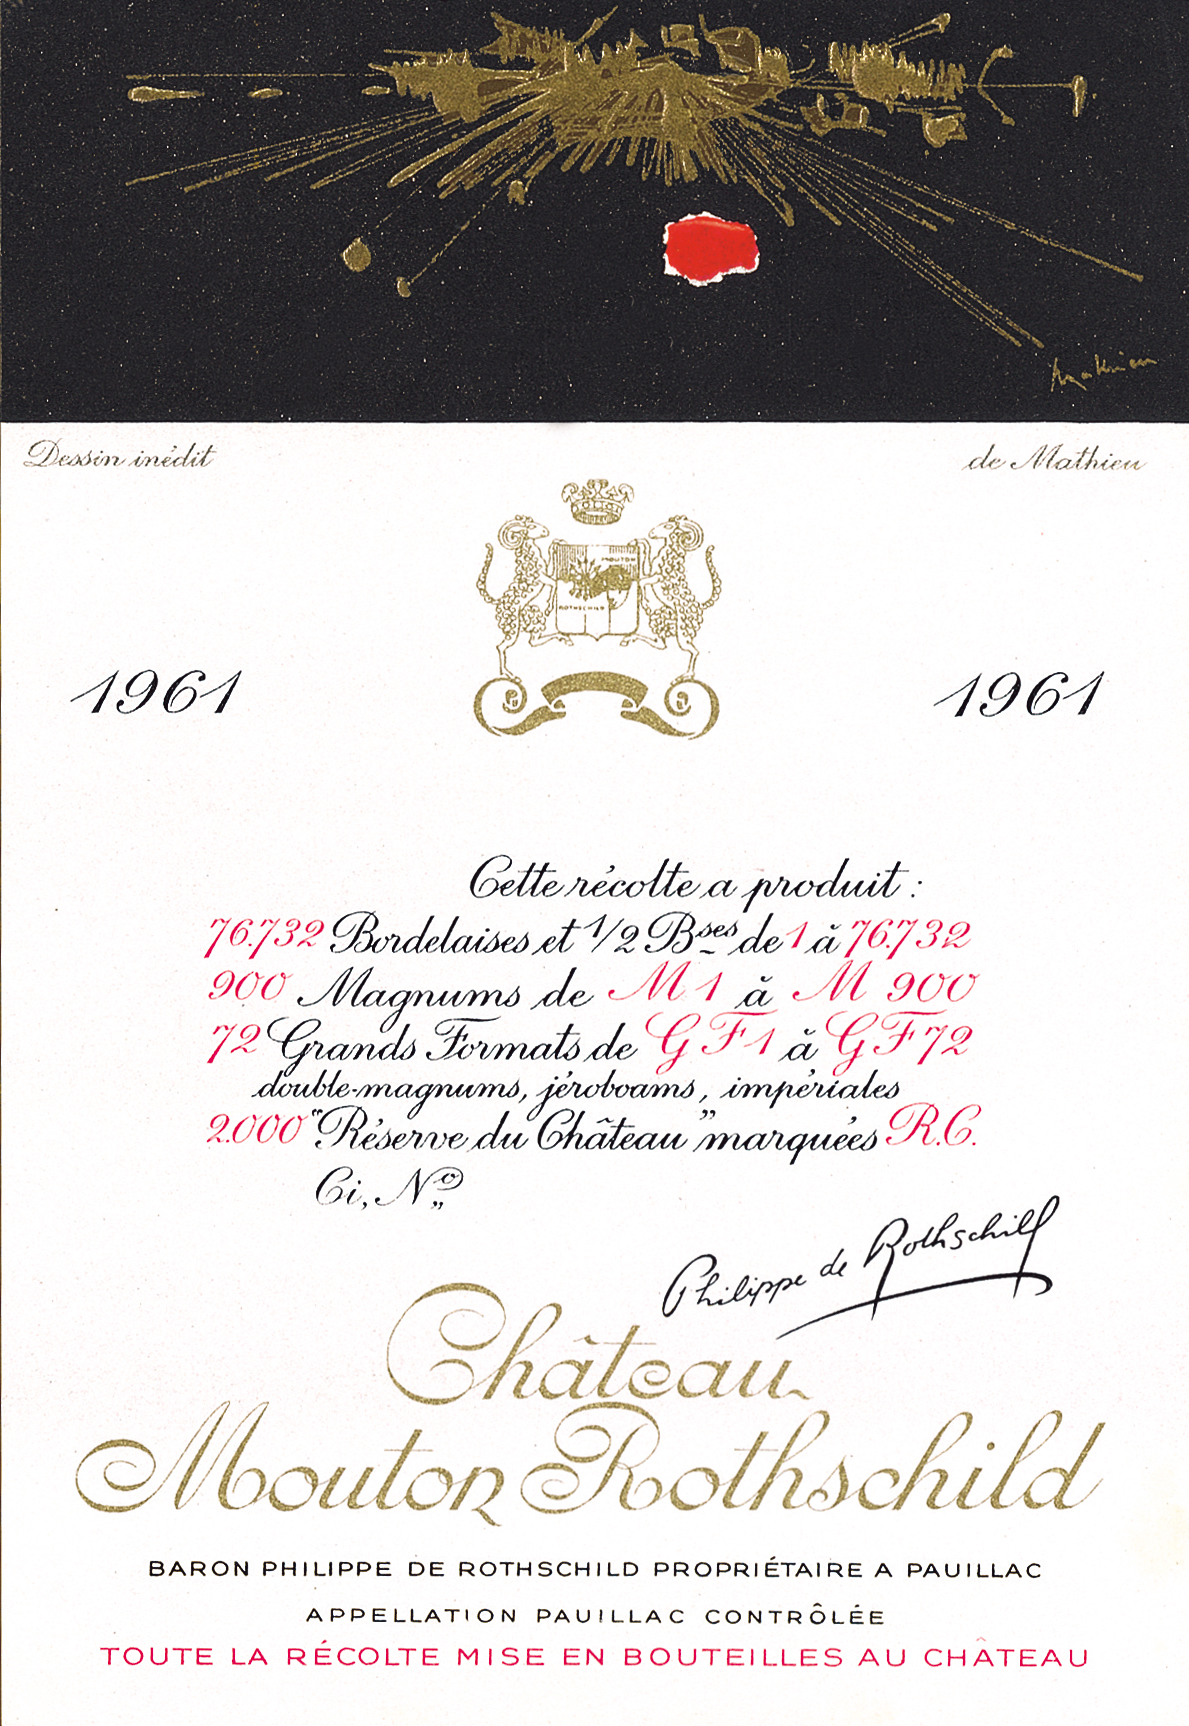 Mathieu
Dessin inédit
de Mathieu
MOUTON
ROTHSCHILD
1961
1961
Cette récolte a produit :
76.732 Bordelaises et 1/2 Bses de 1 à 76.732
900 Magnums de M 1 à M 900
72 Grands Formats de G F 1 à G F 72
double-magnums, jéroboams, impériales
2.000 "Réserve du Château" marquées R.C.
Ci, No
Philippe de Rothschild
Château
Mouton Rothschild
BARON PHILIPPE DE ROTHSCHILD PROPRIÉTAIRE A PAUILLAC
APPELLATION PAUILLAC CONTRÔLÉE
TOUTE LA RÉCOLTE MISE EN BOUTEILLES AU CHÂTEAU